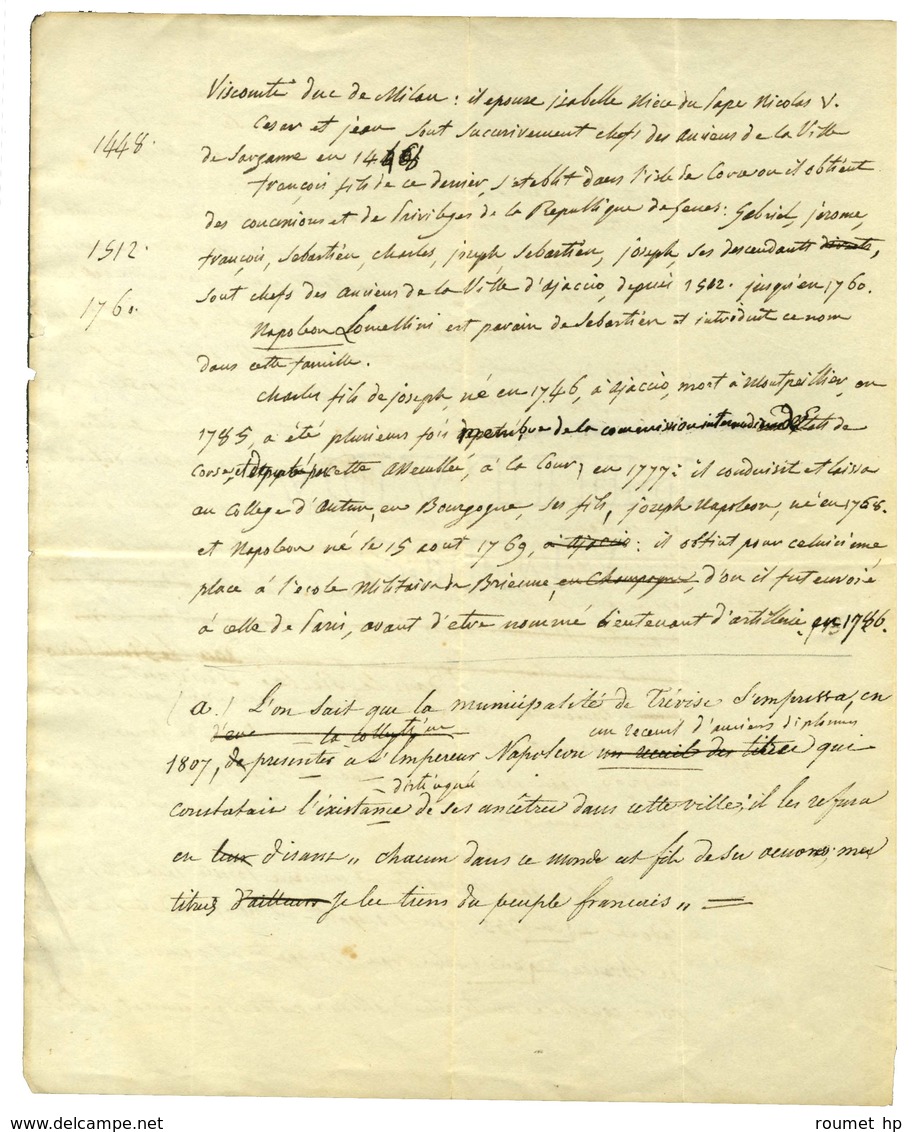 Viscomte duc de Milan : il epouse jzabelle Niéce du Pape Nicolas V.
Cesar et jean sont succesivement chefs des anciens de la Ville
1448.
de Sarzanne en 14
françois fils de ce dernier, s'etablit dans l'isle de Corse ou il obtient
des concessions et de Privileges de la Republique de Genes : Gabriel, jerome,
1512.
françois, Sebastien, charles, joseph, Sebastien, joseph, ses descendants directs,
1760.
sont chefs des anciens de la Ville d'ajaccio, depuis 1512. jusqu'en 1760.
Napoleon Lomellini est parain de Sebastien et introduit ce nom
dans cette famille.
Charles fils de joseph, né en 1746, à ajaccio, mort à Montpellier, en
1785, a été plusieurs fois membre de la commission intermediaire des Etats de
Corse, et deputé par cette Assemblée, à la Cour, en 1777 : il conduisit et laissa
au College d'Autun, en Bourgogne, ses fils, joseph Napoleon, né en 1768.
et Napoleon né le 15 aout 1769, à ajaccio : il obtint pour celuici une
place à l'ecole Militaire de Brienne, en Champagne, d'ou il fut envoié
à celle de Paris, avant d'etre nommé Lieutenant d'artillerie en 1786.
(a) L'on sait que la municipalité de Trévise s'empressa, en
la collection
un recueil d'anciens diplomes
1807, de presenter a L'Empereur Napoleon un recueil des titres qui
distinguée
constatait l'éxistance de ses ancêtres dans cette ville ; il les refusa
en leur disant „ chacun dans ce monde est fils de ses oeuvres ; mes
titres d'ailleurs Je les tiens du peuple francais „ =
roumet hp